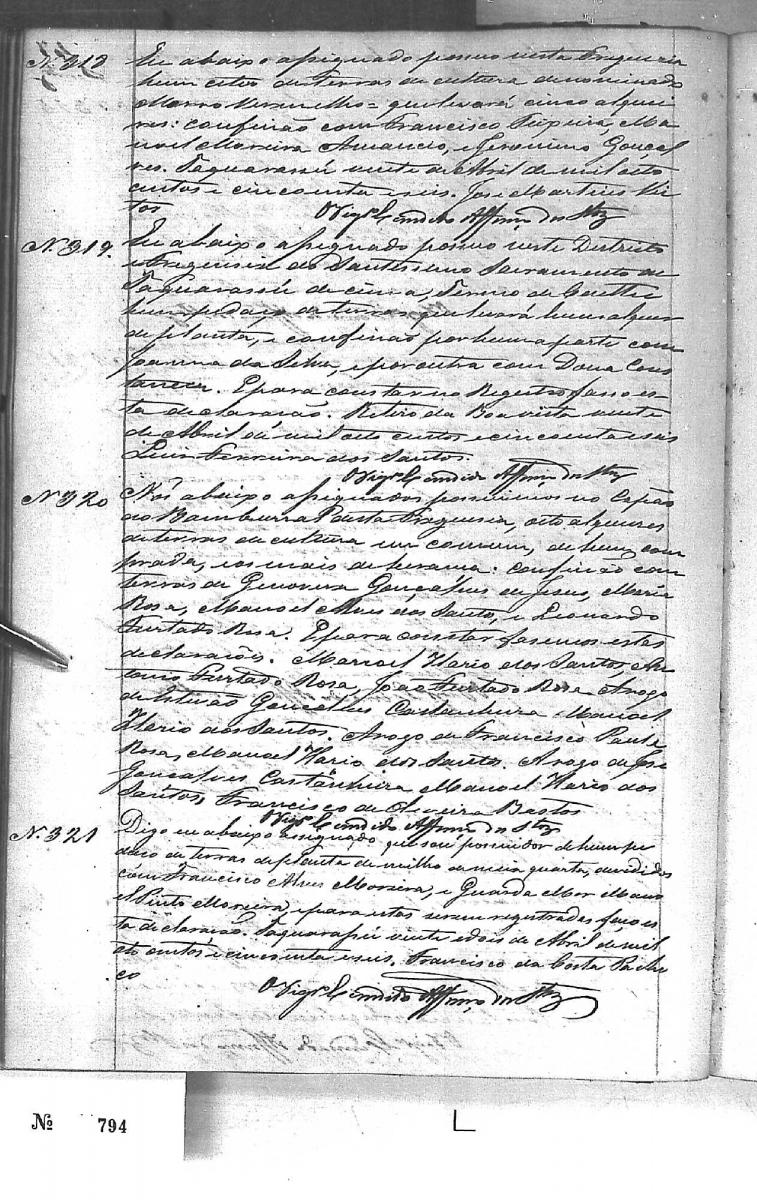 N. 313
Eu abaixo assignado possuo nesta Freguesia
hum citio de terras de cultura denominado
Morro Vermelho = que levará cinco alquei-
res: confinão com Francisco Teixeira, Ma-
noel Moreira Amancio, e Jeronimo Gonçal-
ves. Taquarassú vinte de Abril de mil oito
centos e cincoenta e seis. Jose Martins
tos
O Vigr.o Candido Affonso dos Stos
N. 319.
Eu abaixo assignado possuo neste Destricto
e Freguesia do Santissimo Sacramento de
Taquarassú de cima, Termo de Caethé
hum pedaço de terras que levará hum alquer
de planta, e confinão por huma parte com
Joanna da Silva, e por outra com Dona Cons
tancia. E para constar no Registro fasso es-
ta declaração. Retiro da Boa vista vinte
de Abril de mil oito centos e cincoenta e seis
Luis Ferreira dos Santos.
O Vigr.o Candido Affonso dos Stos
N. 320
Nós abaixo assignados possuimos no Capão
do Bamburral desta Freguesia, oito alqueires
de terras de cultura em comum, de huma com
prada, e os mais de herança: confinão com
terras de Genoveva Gonçalves de Jesus, Maria
Rosa, Manoel Alves dos Santos, e Leonardo
Furtado Rosa. E para constar fasemos estas
declaraçoes. Manoel Hario dos Santos, An-
tonio Furtado Rosa, João Furtado Rosa Arogo
de Estevão Gonçalves Castanheira Manoel
Hario dos Santos. Arogo de Francisco Paula
Rosa, Manoel Hario dos Santos. Arogo de José
Gonçalves Castanheira Manoel Hario dos
Santos, Francisco de Oliveira Bastos
O Vigr.o Candido Affonso dos Stos
N. 321
Digo eu abaixo assignado que sou possuidor de hum pe
daço de terras de planta de milho de meia quarta, devedidos
com Francisco Alves Moreira, e Guarda Mor Mano
el Pinto Moreira, e para estas serem registradas faço es-
ta declaração. Taquarassú vinte e dois de Abril de mil
oito centos e cincoenta e seis. Francisco da Costa Pache
co
O Vigr.o Candido Affonso dos Stos
Nº 794
L